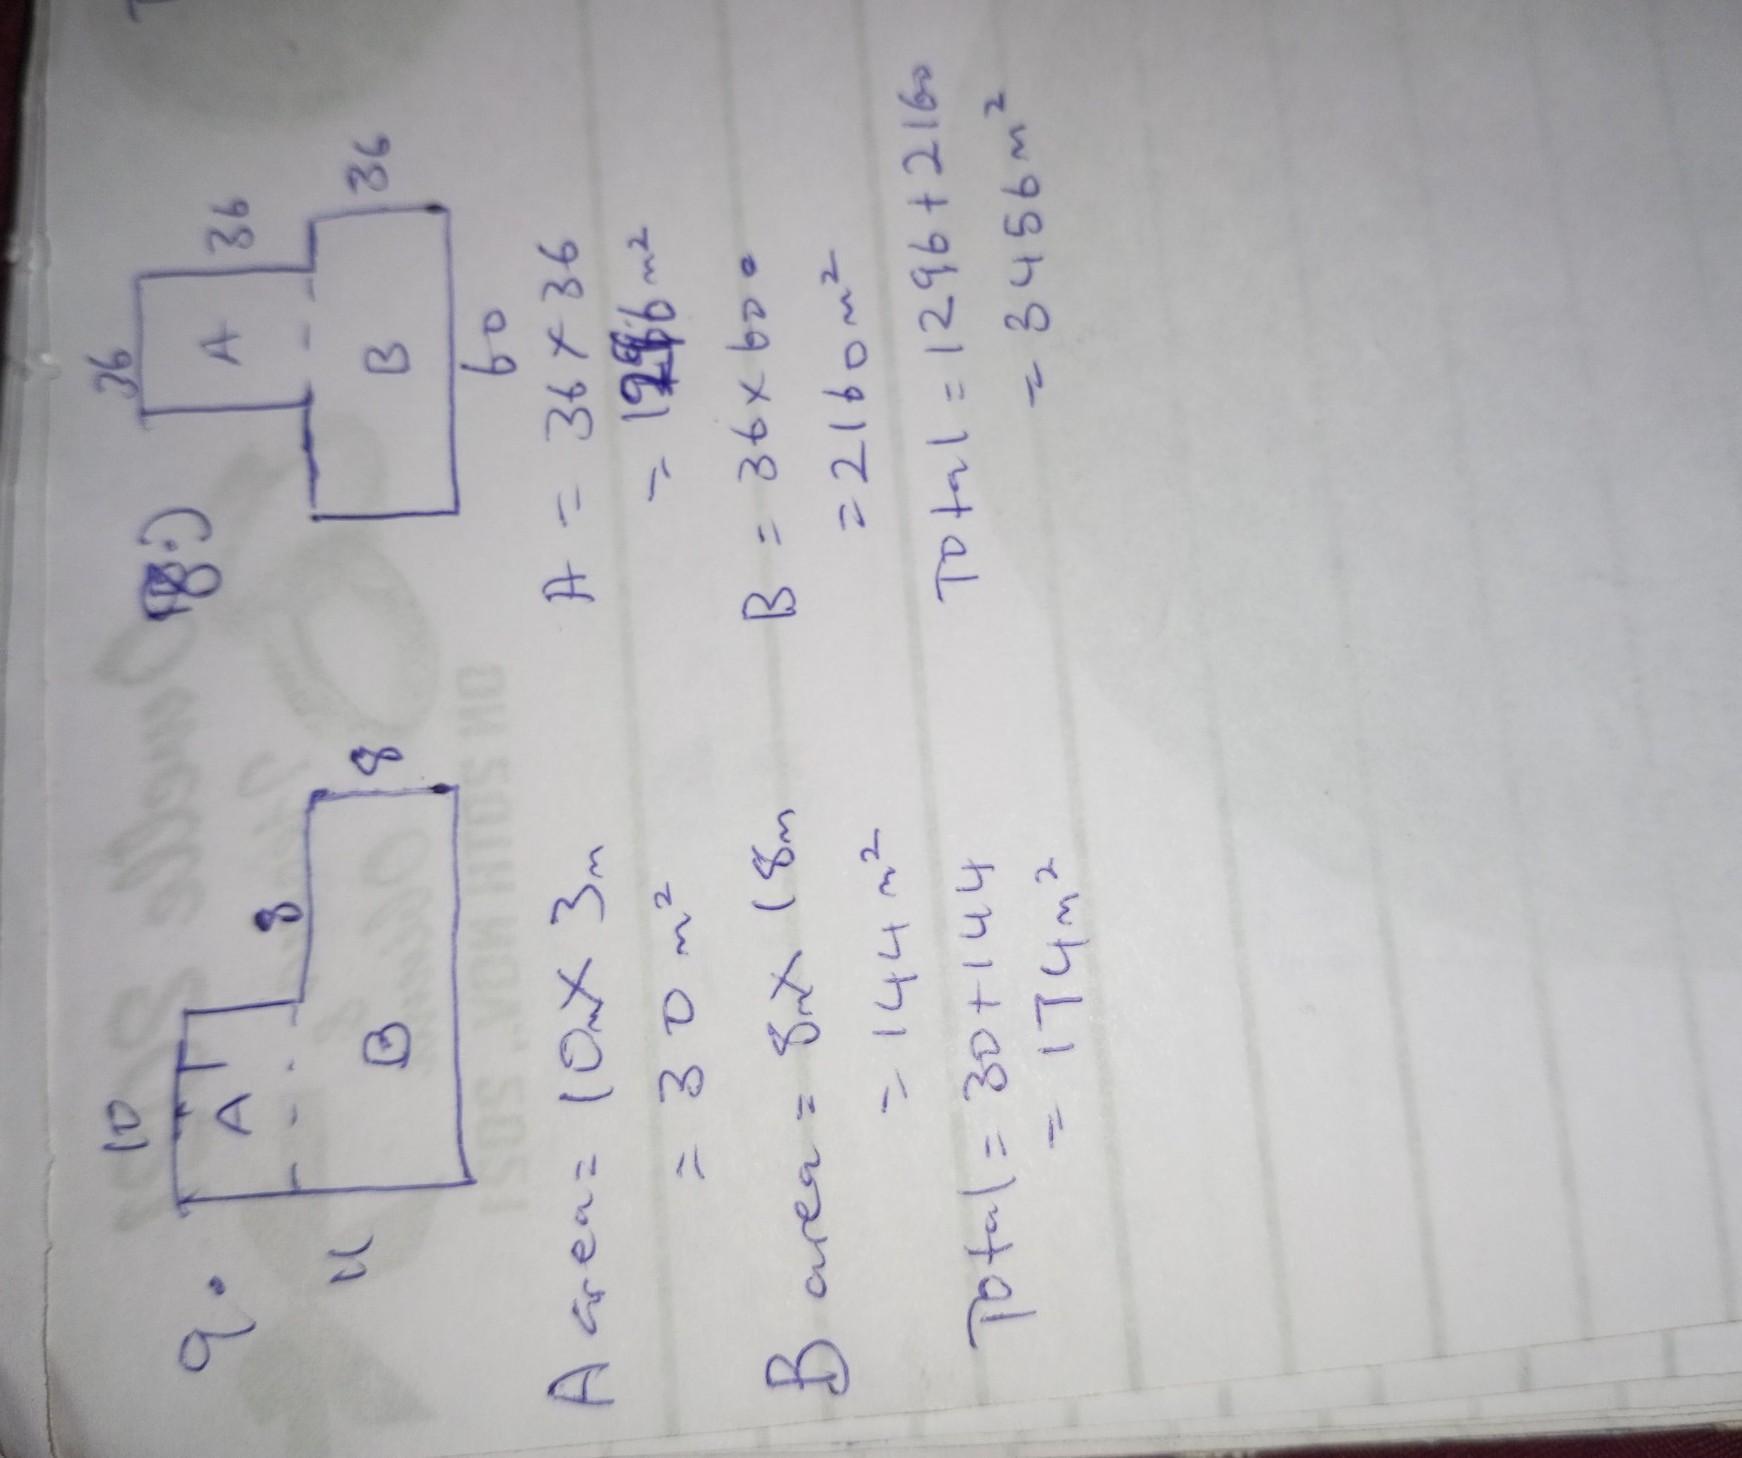 9.
10
A
8
8
11
B
A area = 10m × 3m
= 30 m²
B area = 8m × 18m
= 144 m²
Total = 30 + 144
= 174 m²
8.)
36
A
36
36
B
60
A = 36 × 36
= 1296 m²
B = 36 × 60
= 2160 m²
Total = 1296 + 2160
= 3456 m²